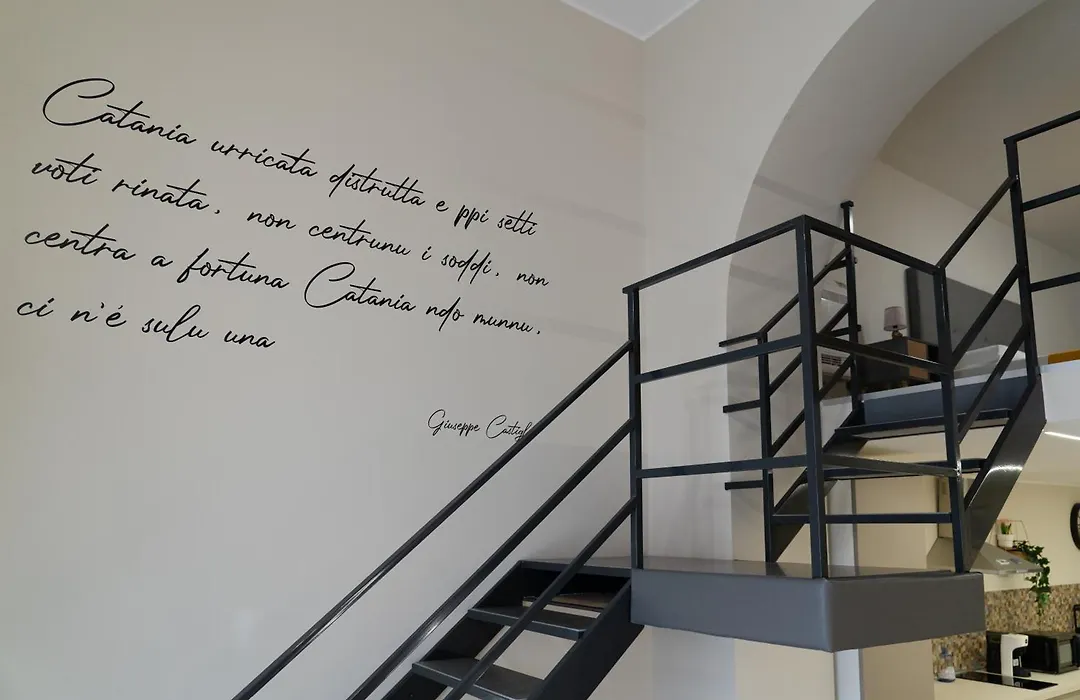 Catania urricata distrutta e ppi setti
voti rinata, non centrunu i soddi, non
centra a fortuna Catania ndo munnu,
ci n'é sulu una
Giuseppe